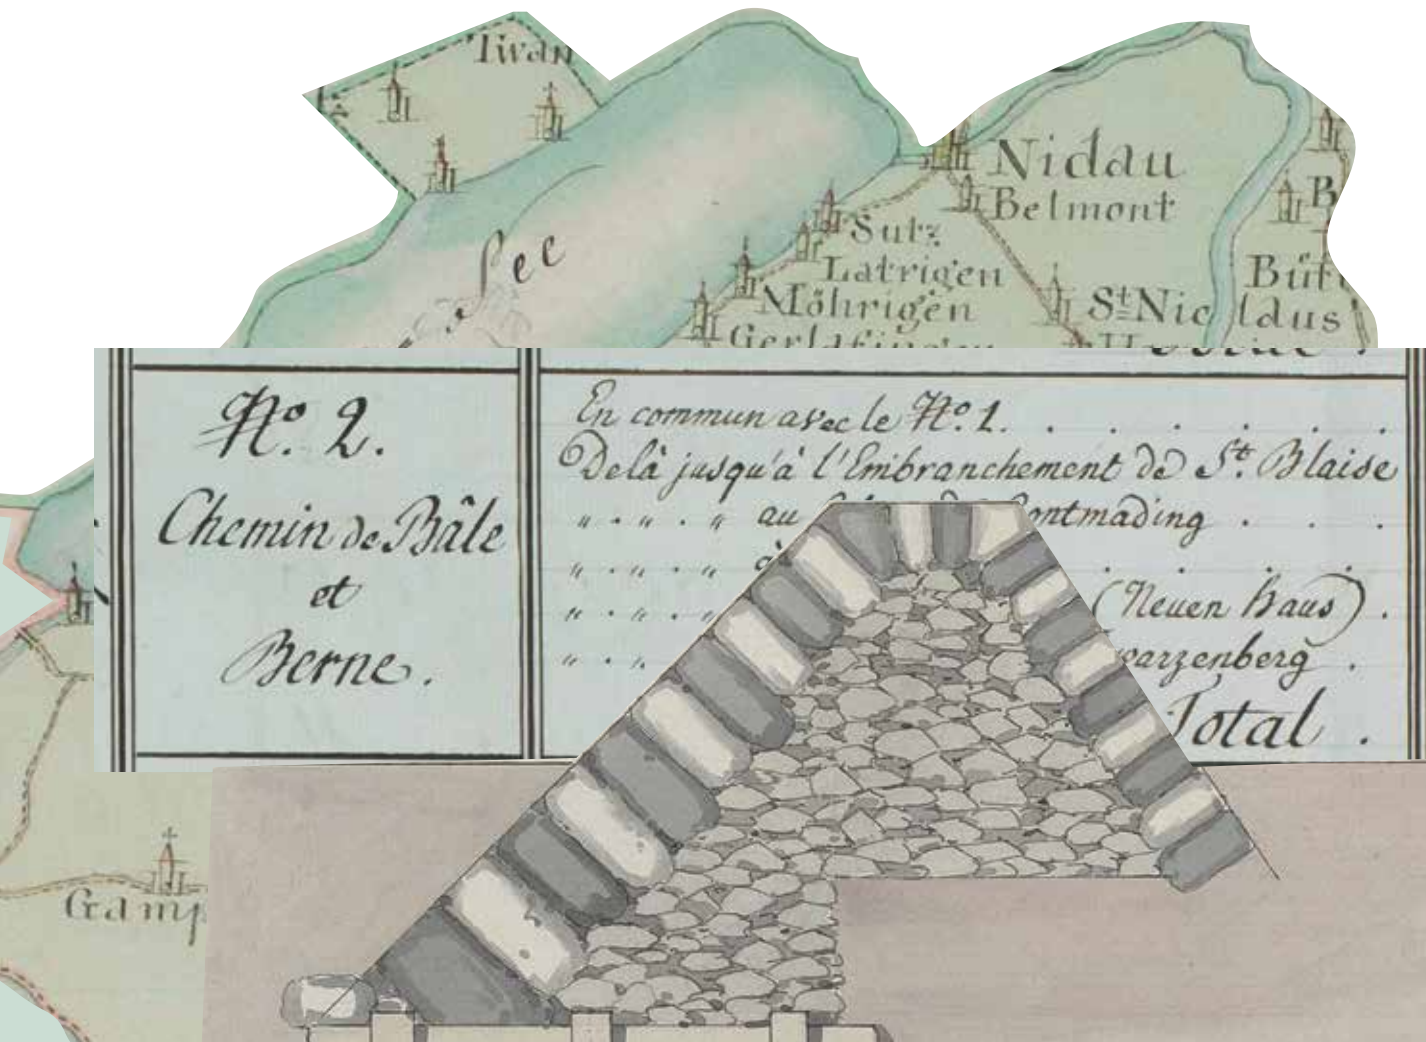 Twan
Nidau
Belmont
Sutz
Latrigen
Möhrigen
St Niclaus
See
No. 2.
Chemin de Bâle
et
Berne.
En commun avec le No. 1. . . . . .
Delà jusqu'à l'Embranchement de St. Blaise
" . " . " au ontmading . . .
" . " . "
" . " . " (Neuen Haus) .
" . " . arzenberg .
Total .
Gamp